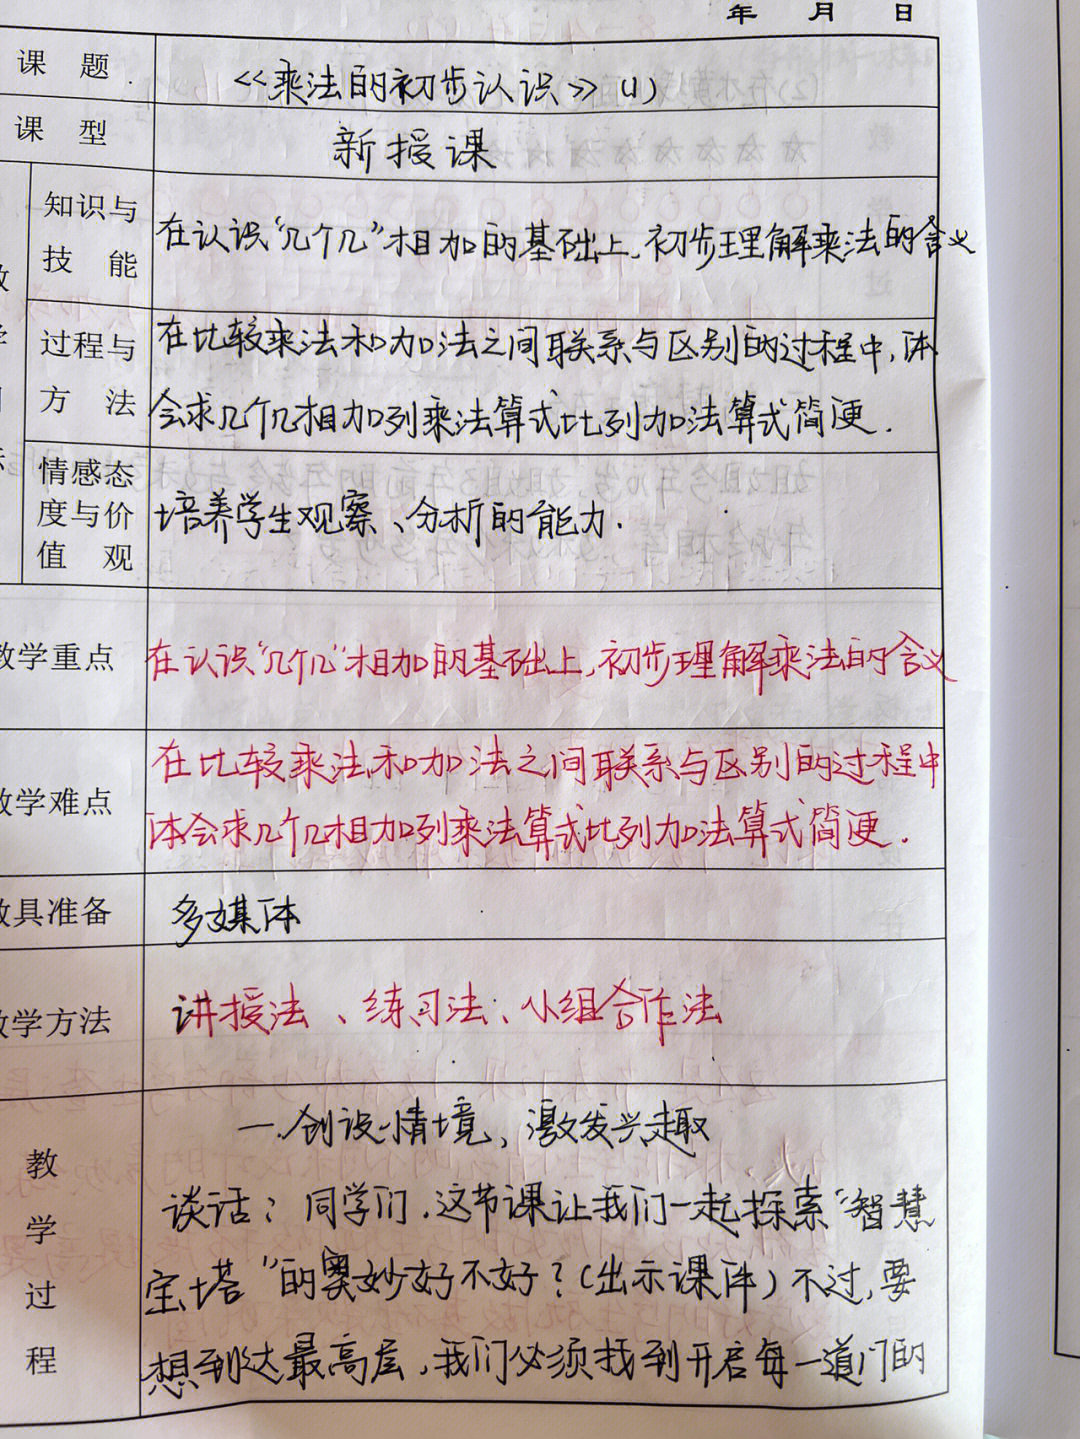 年 月 日
课 题
《乘法的初步认识》(1)
课 型
新授课
知识与
技 能
在认识“几个几”相加的基础上,初步理解乘法的含义
过程与
方 法
在比较乘法和加法之间联系与区别的过程中,体
会求几个几相加列乘法算式比列加法算式简便.
情感态
度与价
值 观
培养学生观察、分析的能力.
教学重点
在认识“几个几”相加的基础上,初步理解乘法的含义
教学难点
在比较乘法和加法之间联系与区别的过程中
体会求几个几相加列乘法算式比列加法算式简便.
教具准备
多媒体
教学方法
讲授法、练习法、小组合作法
教
学
过
程
一.创设情境,激发兴趣
谈话:同学们,这节课让我们一起探索“智慧
宝塔”的奥妙好不好?(出示课件)不过,要
想到达最高层,我们必须找到开启每一道门的